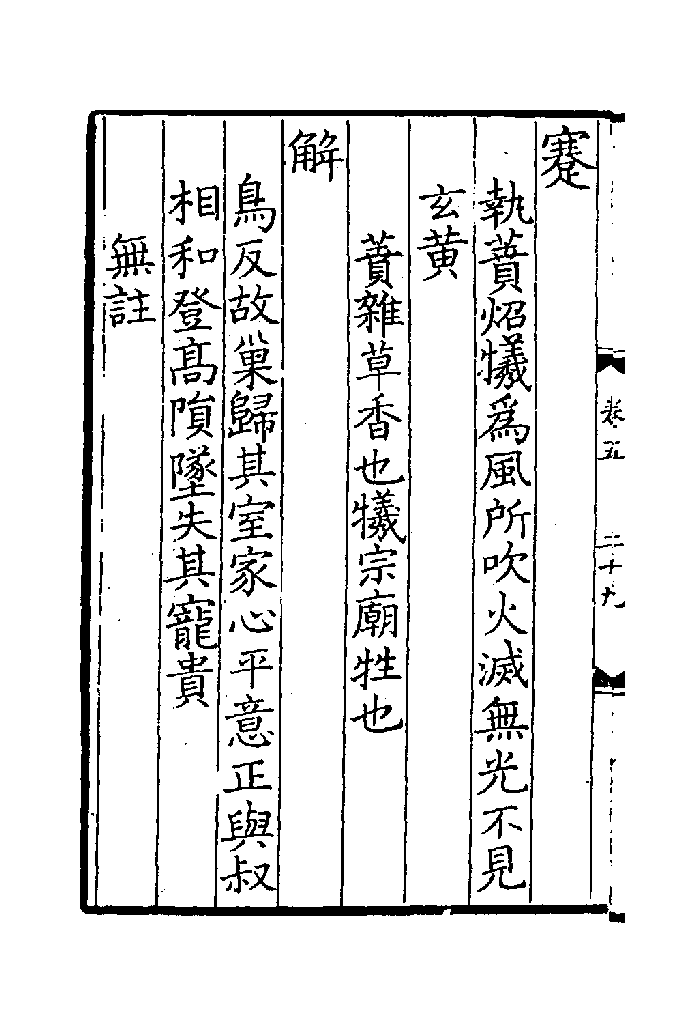 蹇
執蕡炤犧為風所吹火滅無光不見
玄黄
蕡雜草香也犧宗廟牲也
解
鳥反故巢歸其室家心平意正與叔
相和登髙隕墜失其寵貴
無註
卷五
二十九